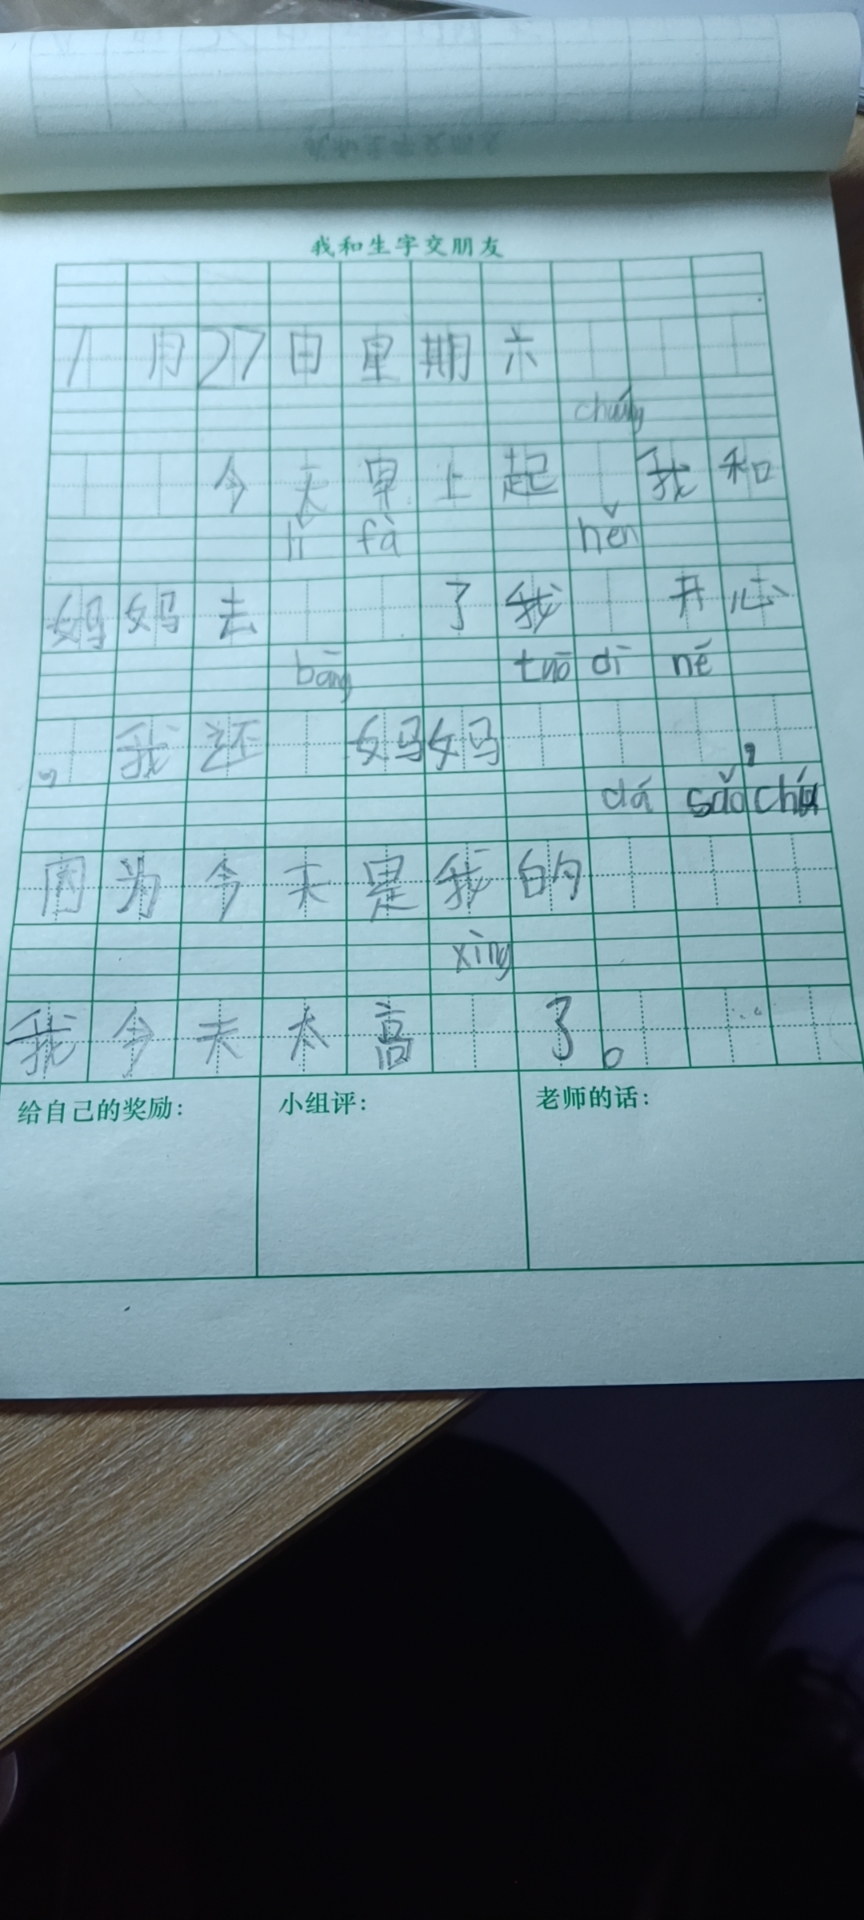 我和生字交朋友
1月27日星期六
chuáng
今天早上起 我和
lǐ fà hěn
妈妈去 了我 开心
bāng tuō dì nē
，我还 妈妈 ，
dá sǎo chú
因为今天是我的
xìng
我今天太高 了。
给自己的奖励： 小组评： 老师的话：